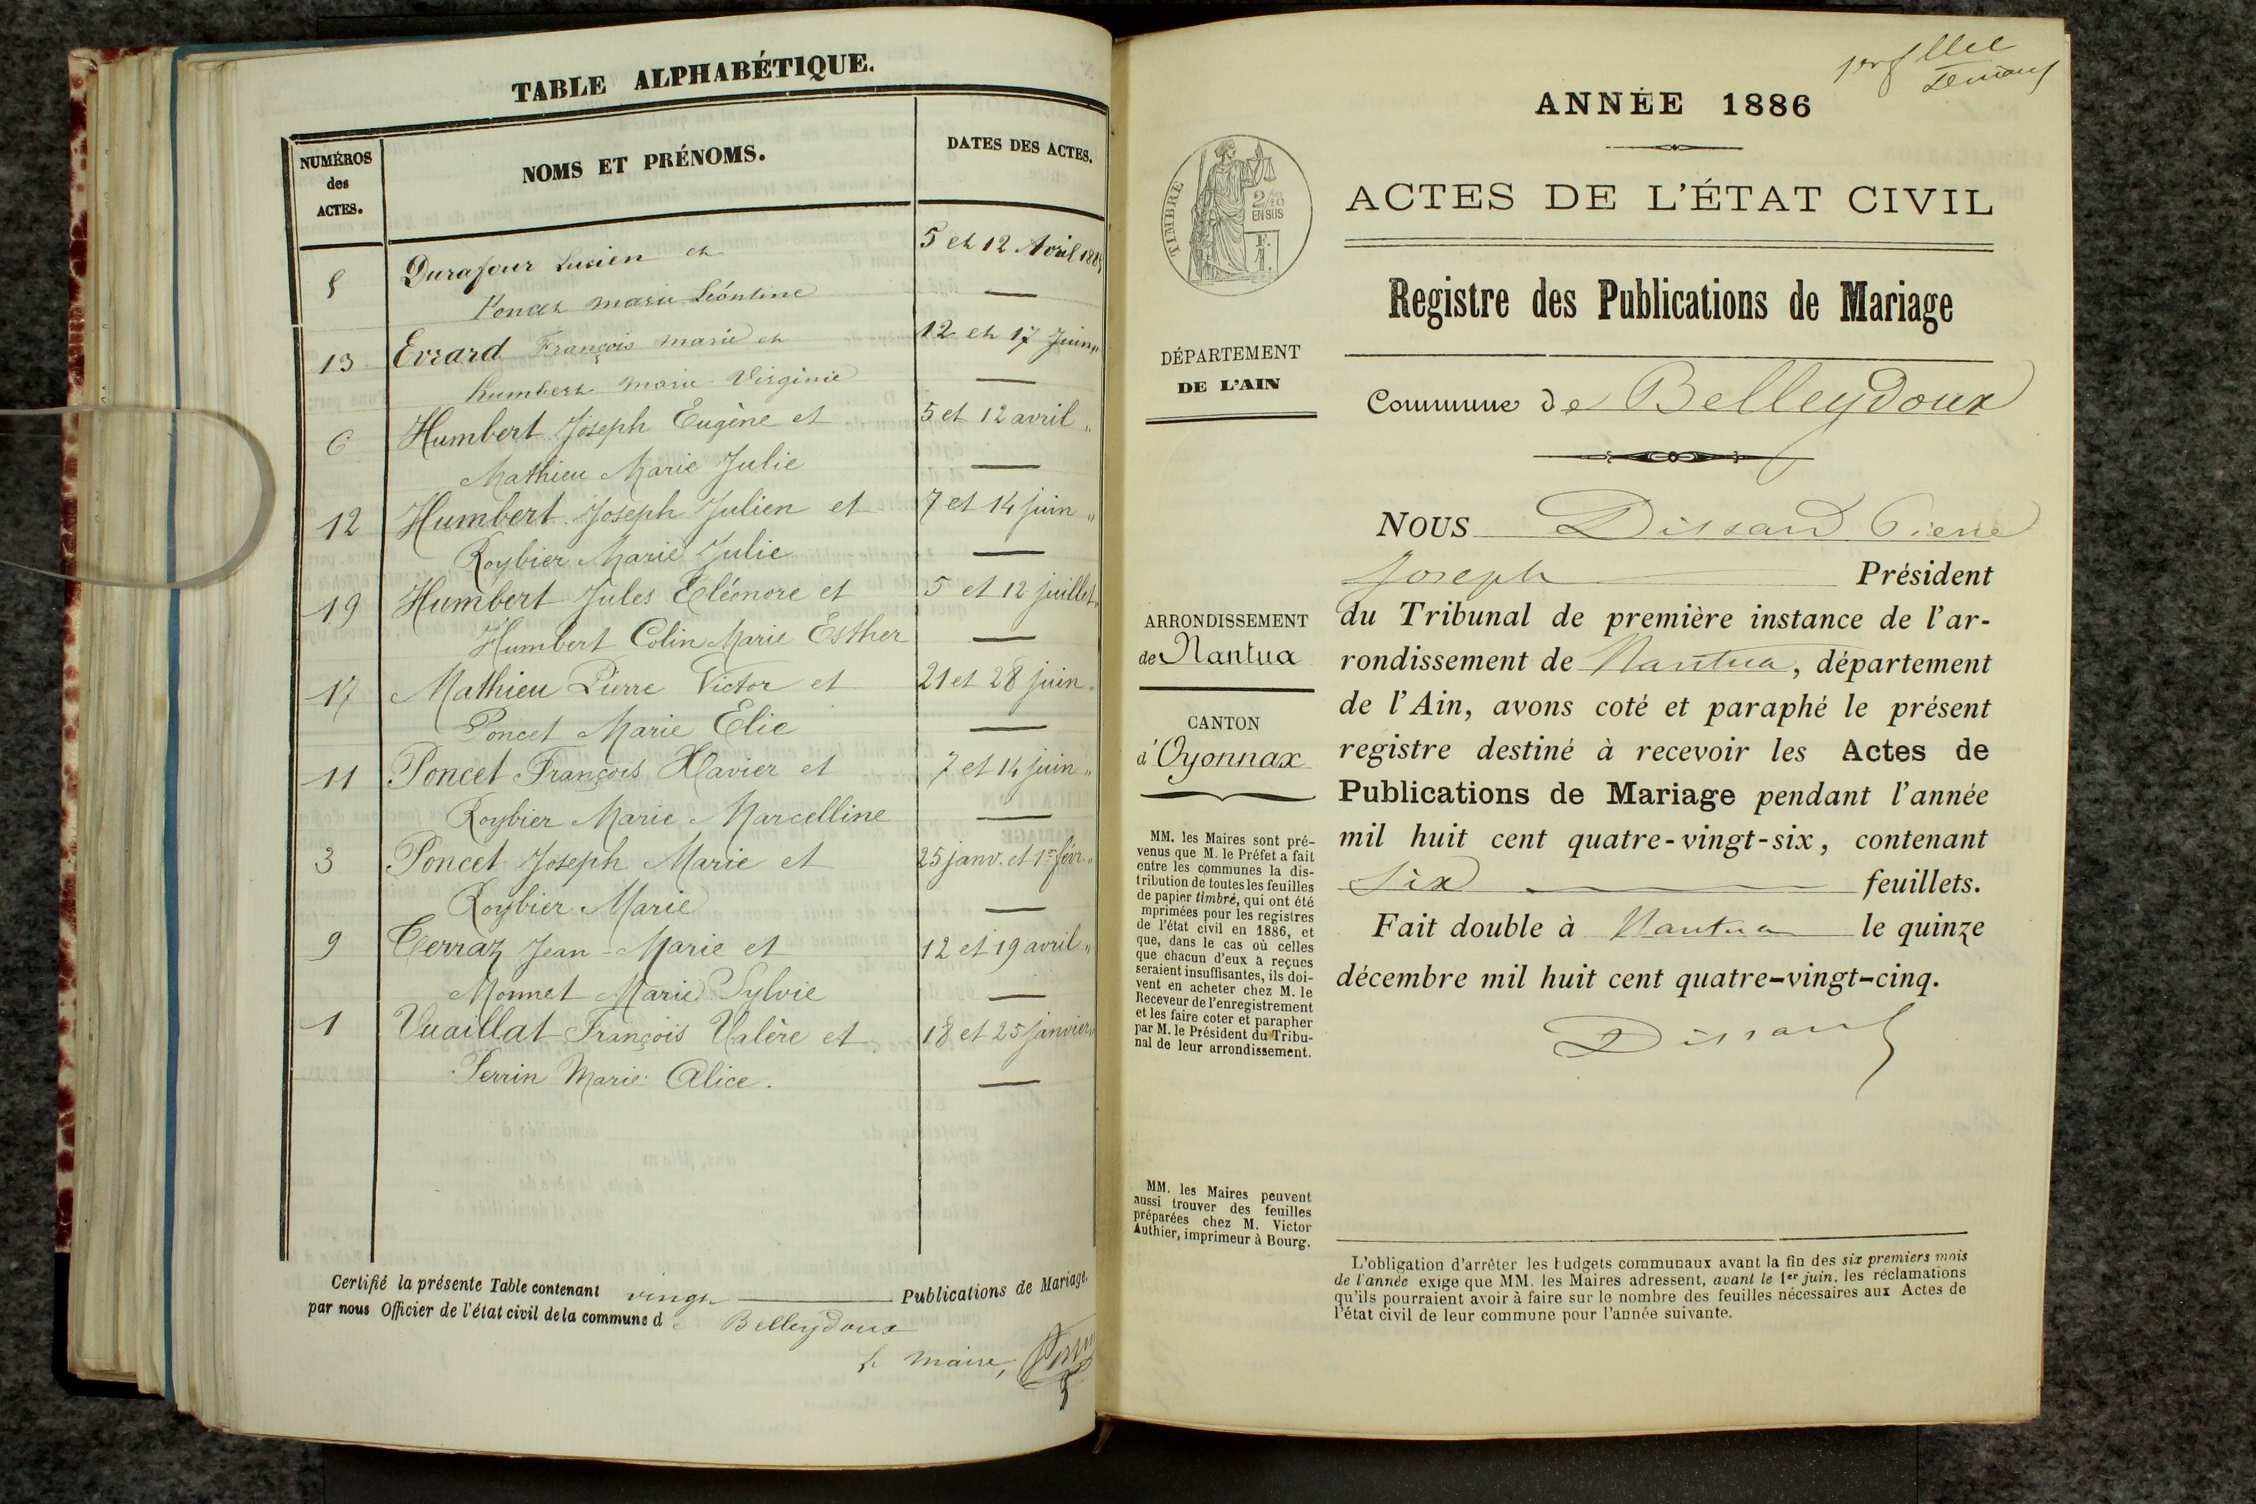 TABLE ALPHABÉTIQUE.
NUMÉROS
des
ACTES.
NOMS ET PRÉNOMS.
DATES DES ACTES.
5 Durafour Lucien et 5 et 12 Avril 1885
Poncet marie Léontine
13 Evrard François marie et 12 et 17 Juin "
humbert marie Virginie
6 Humbert Joseph Eugène et 5 et 12 avril "
Mathieu Marie Julie
12 Humbert Joseph Julien et 7 et 14 juin "
Roybier Marie Julie
19 Humbert Jules Eléonore et 5 et 12 juillet "
Humbert Colin Marie Esther
17 Mathieu Pierre Victor et 21 et 28 juin "
Poncet Marie Elie
11 Poncet François Xavier et 7 et 14 juin "
Roybier Marie Marcelline
3 Poncet Joseph Marie et 25 janv. et 1er févr. "
Roybier Marie
9 Cerraz Jean-Marie et 12 et 19 avril "
Monnet Marie Sylvie
1 Vuaillat François Valère et 18 et 25 janvier "
Perrin Marie Alice.
Certifié la présente Table contenant vingt Publications de Mariage.
par nous Officier de l'état civil de la commune de Belleydoux
le maire,
1er f
ANNÉE 1886
ACTES DE L'ÉTAT CIVIL
TIMBRE
2/10
EN SUS
F.
1
Registre des Publications de Mariage
DÉPARTEMENT
DE L'AIN
Commune de Belleydoux
NOUS Dissard Pierre
Joseph Président
du Tribunal de première instance de l'ar-
rondissement de Nantua, département
de l'Ain, avons coté et paraphé le présent
registre destiné à recevoir les Actes de
Publications de Mariage pendant l'année
mil huit cent quatre-vingt-six, contenant
Six feuillets.
Fait double à Nantua le quinze
décembre mil huit cent quatre-vingt-cinq.
Dissard
ARRONDISSEMENT
de Nantua
CANTON
d'Oyonnax
MM. les Maires sont pré-
venus que M. le Préfet a fait
entre les communes la dis-
tribution de toutes les feuilles
de papier timbré, qui ont été
mprimées pour les registres
de l'état civil en 1886, et
que, dans le cas où celles
que chacun d'eux a reçues
seraient insuffisantes, ils doi-
vent en acheter chez M. le
Receveur de l'enregistrement
et les faire coter et parapher
par M. le Président du Tribu-
nal de leur arrondissement.
MM. les Maires peuvent
aussi trouver des feuilles
préparées chez M. Victor
Authier, imprimeur à Bourg.
L'obligation d'arrêter les budgets communaux avant la fin des six premiers mois
de l'année exige que MM. les Maires adressent, avant le 1er juin, les réclamations
qu'ils pourraient avoir à faire sur le nombre des feuilles nécessaires aux Actes de
l'état civil de leur commune pour l'année suivante.